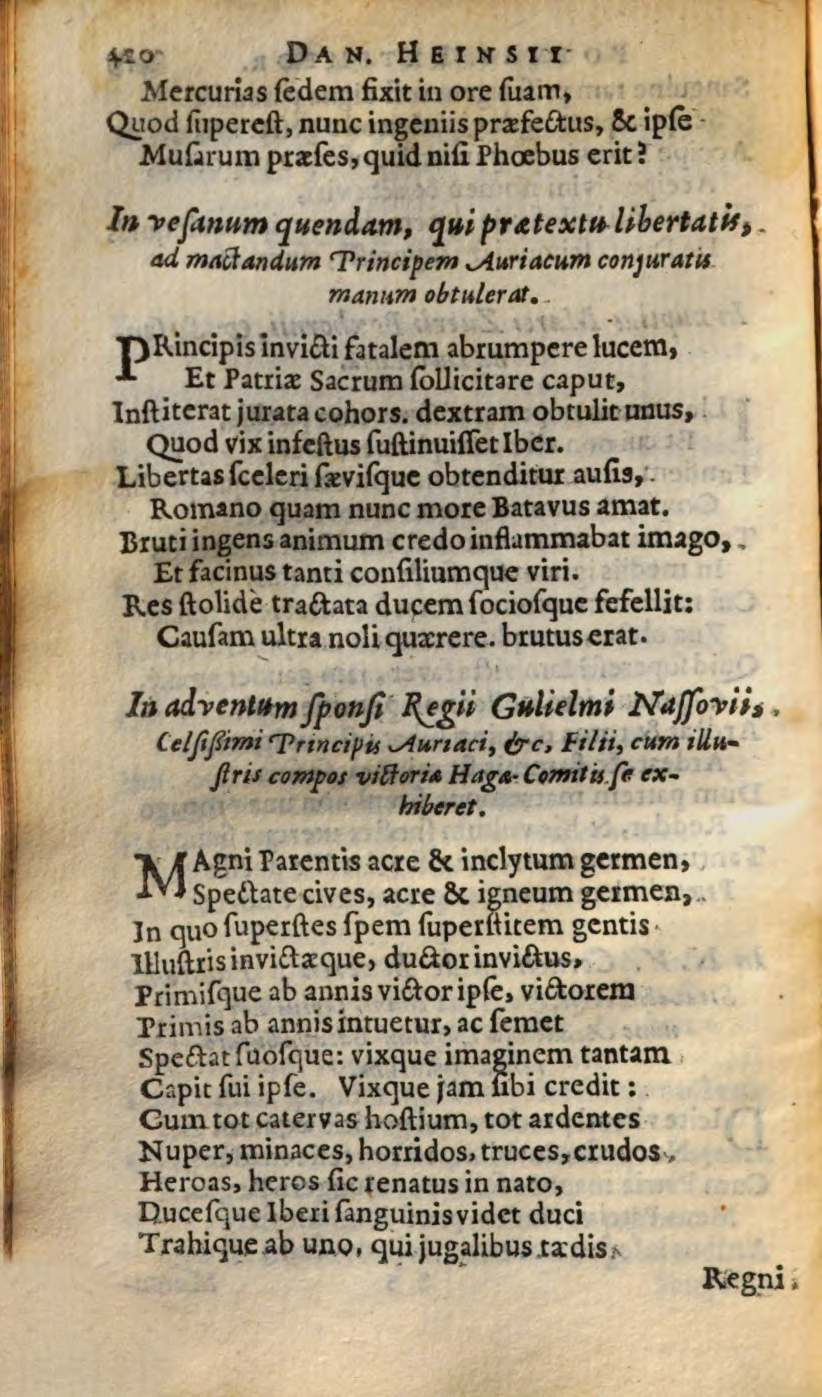 420 DAN. HEINSII
Mercurias ſedem fixit in ore ſuam,
Quod ſupereſt, nunc ingeniis præfectus, & ipſe
Muſarum præſes, quid niſi Phœbus erit?
In veſanum quendam, qui prætextu libertatis,
ad mactandum Principem Auriacum conjuratis
manum obtulerat.
PRincipis invicti fatalem abrumpere lucem,
Et Patriæ Sacrum ſollicitare caput,
Inſtiterat jurata cohors. dextram obtulit unus,
Quod vix infeſtus ſuſtinuiſſet Iber.
Libertas ſceleri ſæviſque obtenditur auſis,
Romano quam nunc more Batavus amat.
Bruti ingens animum credo inflammabat imago,
Et facinus tanti conſiliumque viri.
Res ſtolidè tractata ducem ſocioſque fefellit:
Cauſam ultra noli quærere. brutus erat.
In adventum ſponſi Regii Gulielmi Naſſovii,
Celſiſſimi Principis Auriaci, &c, Filii, cum illu-
ſtris compos victoriæ Hagæ-Comitis ſe ex-
hiberet.
MAgni Parentis acre & inclytum germen,
Spectate cives, acre & igneum germen,
In quo ſuperſtes ſpem ſuperſtitem gentis
Illuſtris invictæque, ductor invictus,
Primiſque ab annis victor ipſe, victorem
Primis ab annis intuetur, ac ſemet
Spectat ſuoſque: vixque imaginem tantam
Capit ſui ipſe. Vixque jam ſibi credit:
Cum tot catervas hoſtium, tot ardentes
Nuper, minaces, horridos, truces, crudos,
Heroas, heros ſic renatus in nato,
Duceſque Iberi ſanguinis videt duci
Trahique ab uno, qui jugalibus tædis
Regni